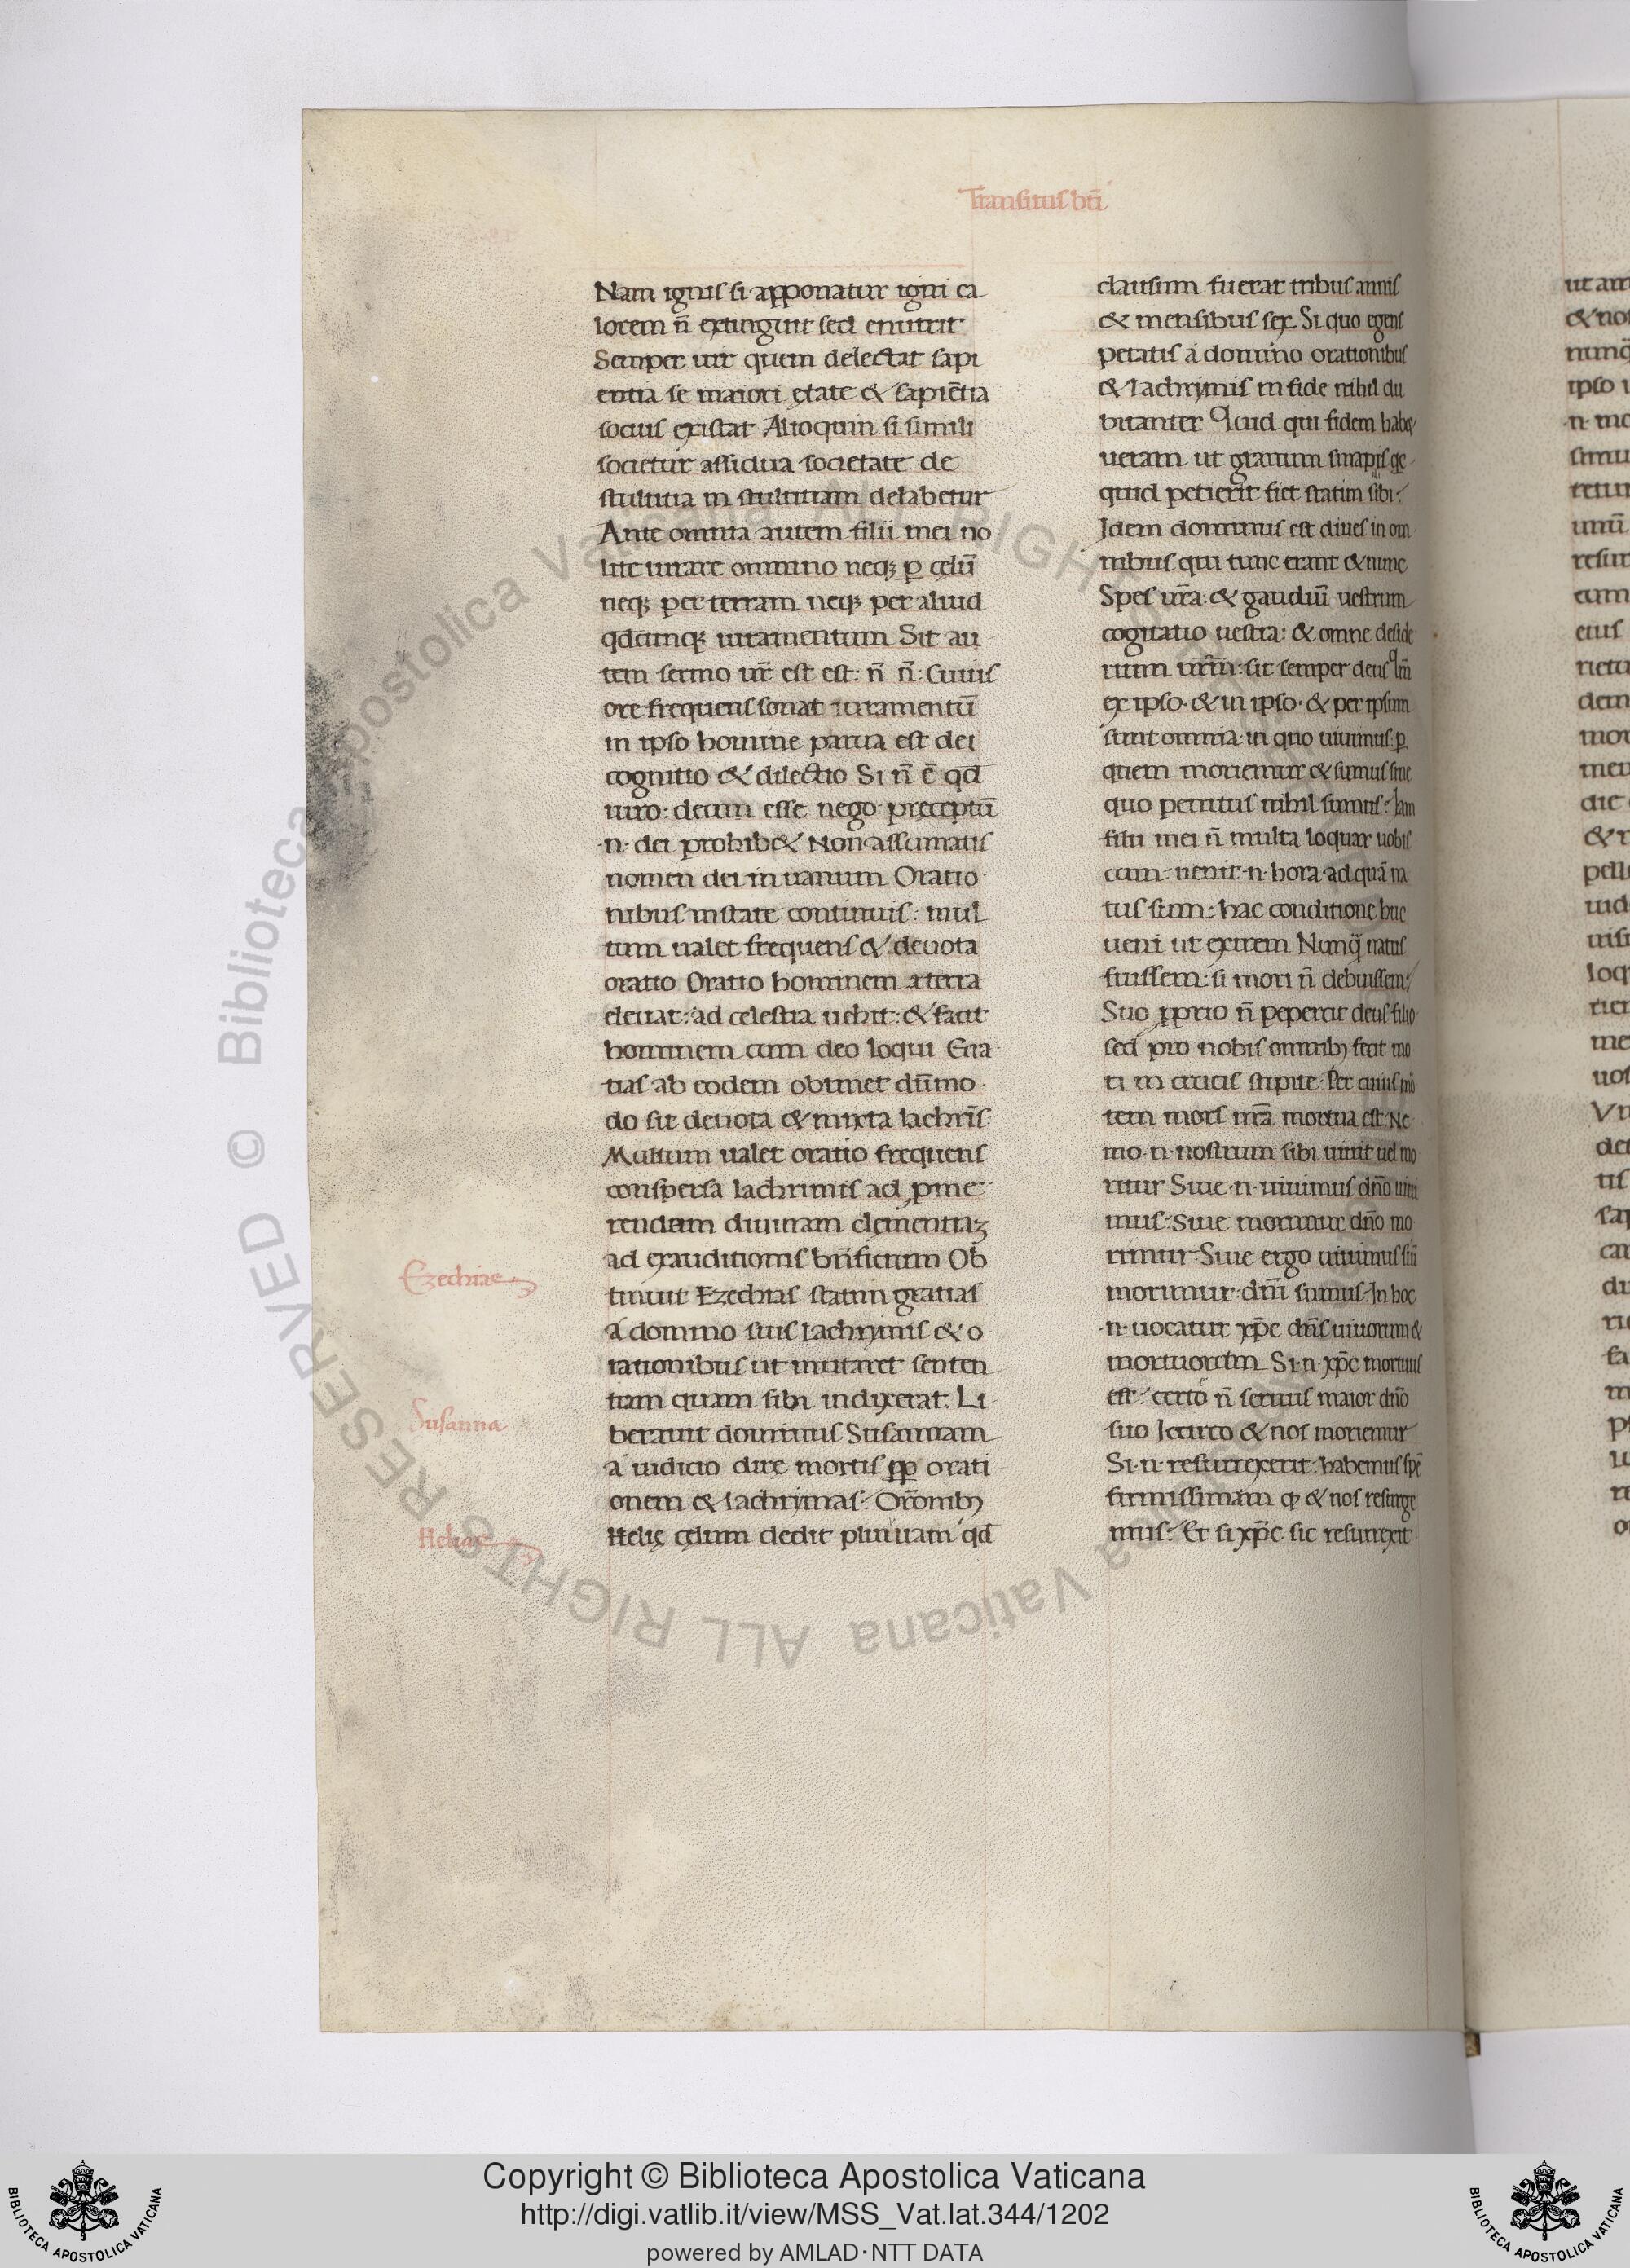 Transitus bti̅
Nam ignis si apponatur igni ca
lorem n̅ extinguit sed enutrit
Semper uir quem delectat sapi
entia se maiori ętate & sapie̅tia
socius existat Alioquin si simili
societur assidua societate de
stultitia in stultitiam delabetur
Ante omnia autem filii mei no
lite iurare omnino neqꝫ ꝑ cęlu̅
neqꝫ per terram neqꝫ per aliud
qdcunqꝫ iuramentum Sit au
tem sermo ur̅ est est: n̅ n̅: Cuius
ore frequens sonat iuramentu̅
in ipso homine parua est dei
cognitio & dilectio Si n̅ e̅ qd̅
iuro: deum esse nego: pręceptu̅
·n· dei prohib& Non assumatis
nomen dei in uanum Oratio
nibus instate continuis: mul
tum ualet frequens & deuota
oratio Oratio hominem a terra
eleuat: ad celestia uehit: & facit
hominem cum deo loqui Gra
tias ab eodem obtinet du̅mo
do sit deuota & mixta lachri̅s
Multum ualet oratio frequens
conspersa lachrimis ad ꝓme
rendam diuinam clęmentiaꝫ
ad exauditionis bn̅ficium Ob
tinuit Ezechias statim gratias
á domino suis lachrymis & o
rationibus ut mutaret senten
tiam quam sibi indixerat. Li
berauit dominus Susannam
á iudicio dirę mortis ꝓꝑ orati
onem & lachrymas: Oro̅nibꝫ
Helię cęlum dedit pluuiam qd̅
Ezechiae
Susanna
Heliae
clausum fuerat tribus annis
& mensibus sex Si quo egens
petatis á domino orationibus
& lachrymis in fide nihil du
bitanter Qcuid qui fidem habę
ueram ut granum sinapis qc
quid petierit fiet statim sibi:
Idem dominus est diues in om
nibus qui tunc erant & nunc
Spes ur̅a: & gaudiu̅ uestrum
cogitatio uestra: & omne deside
rium ur̅m: sit semper deus qm̅
ex ipso· & in ipso· & per ipsum
sunt omnia: in quo uiuimus: ꝑ
quem moriemur & sumus sine
quo penitus nihil sumus: Iam
filii mei n̅ multa loquar uobis
cum: uenit ·n· hora ad qua̅ na
tus sum: hac conditione huc
ueni ut exirem Nunq̅ natus
fuissem: si mori n̅ debuissem:
Suo ꝓprio n̅ pepercit deus filio
sed pro nobis omnibꝫ fecit mo
ri in crucis stipite: Per cuius mo̅
tem mors nr̅a mortua est: Ne
mo ·n· nostrum sibi uiuit uel mo
ritur Siue ·n· uiuimus dn̅o uiui
mus: Siue morimur dn̅o mo
rimur Siue ergo uiuimus siu̅
morimur: dn̅i sumus: In hoc
·n· uocatur xp̅c dn̅s uiuorum &
mortuorum Si ·n· xp̅c mortuus
est: certo n̅ seruus maior dn̅o
suo Iccirco & nos moriemur
Si ·n· resurrexerit: habemus spe̅
firmissimam qꝫ & nos resurge
mus: Et si xp̅c sic resurrexit
Copyright © Biblioteca Apostolica Vaticana
http://digi.vatlib.it/view/MSS_Vat.lat.344/1202
powered by AMLAD·NTT DATA